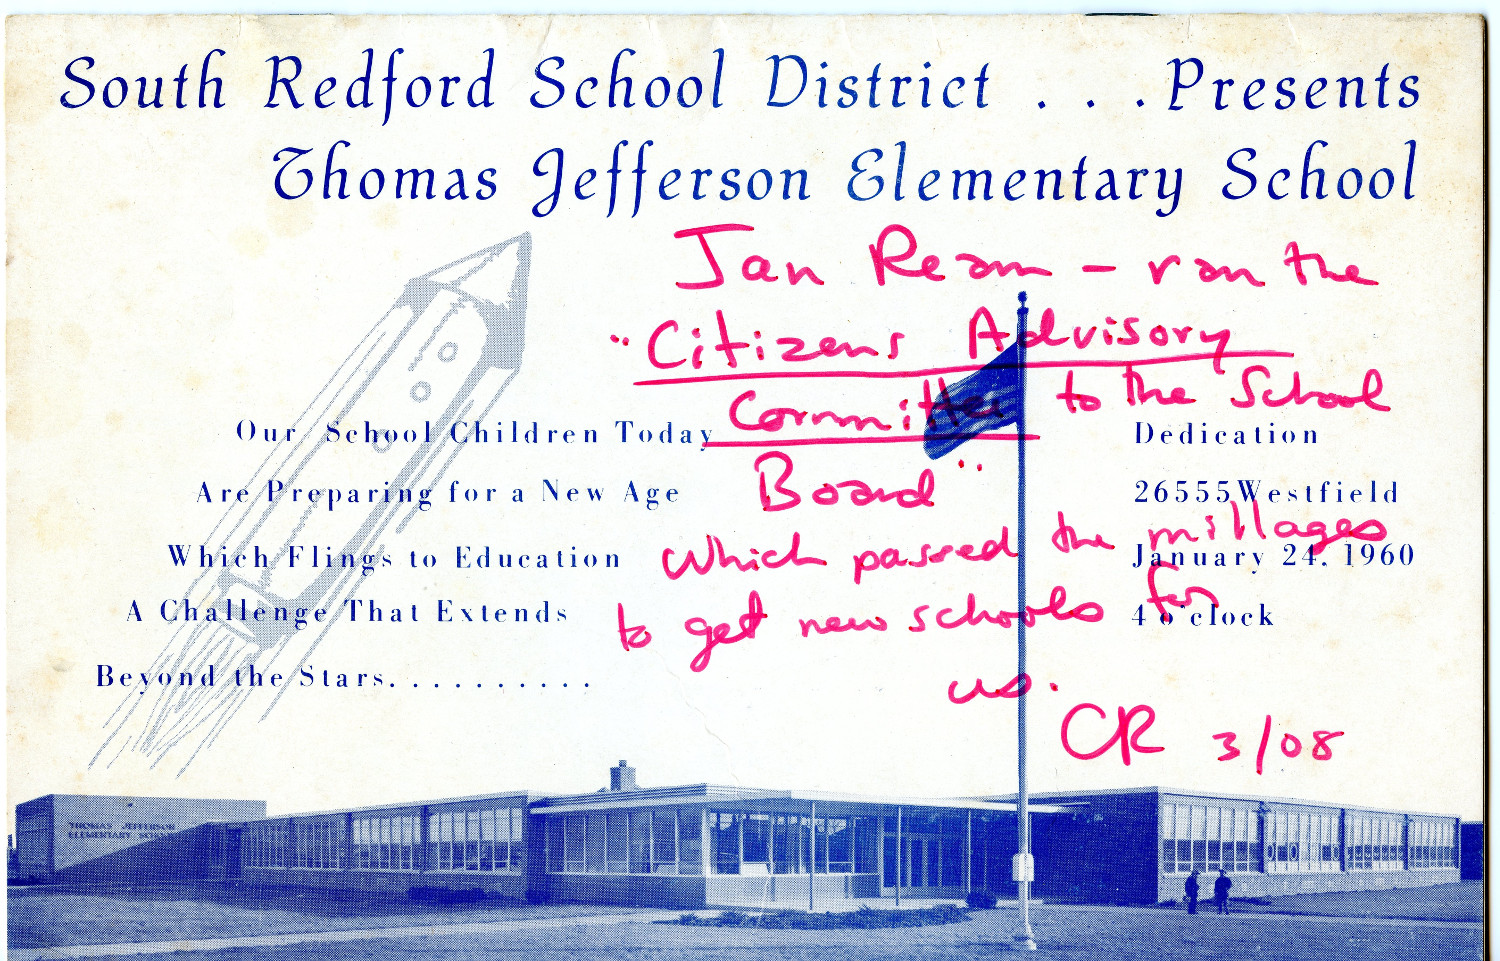 South Redford School District . . . Presents
Thomas Jefferson Elementary School
Jan Ream - ran the
"Citizens Advisory
Committee to the School
Board"
which passed the millages
to get new schools for
us.
CR 3/08
Our School Children Today
Are Preparing for a New Age
Which Flings to Education
A Challenge That Extends
Beyond the Stars. . . . . . . . . .
Dedication
26555 Westfield
January 24, 1960
4 o'clock
THOMAS JEFFERSON
ELEMENTARY SCHOOL